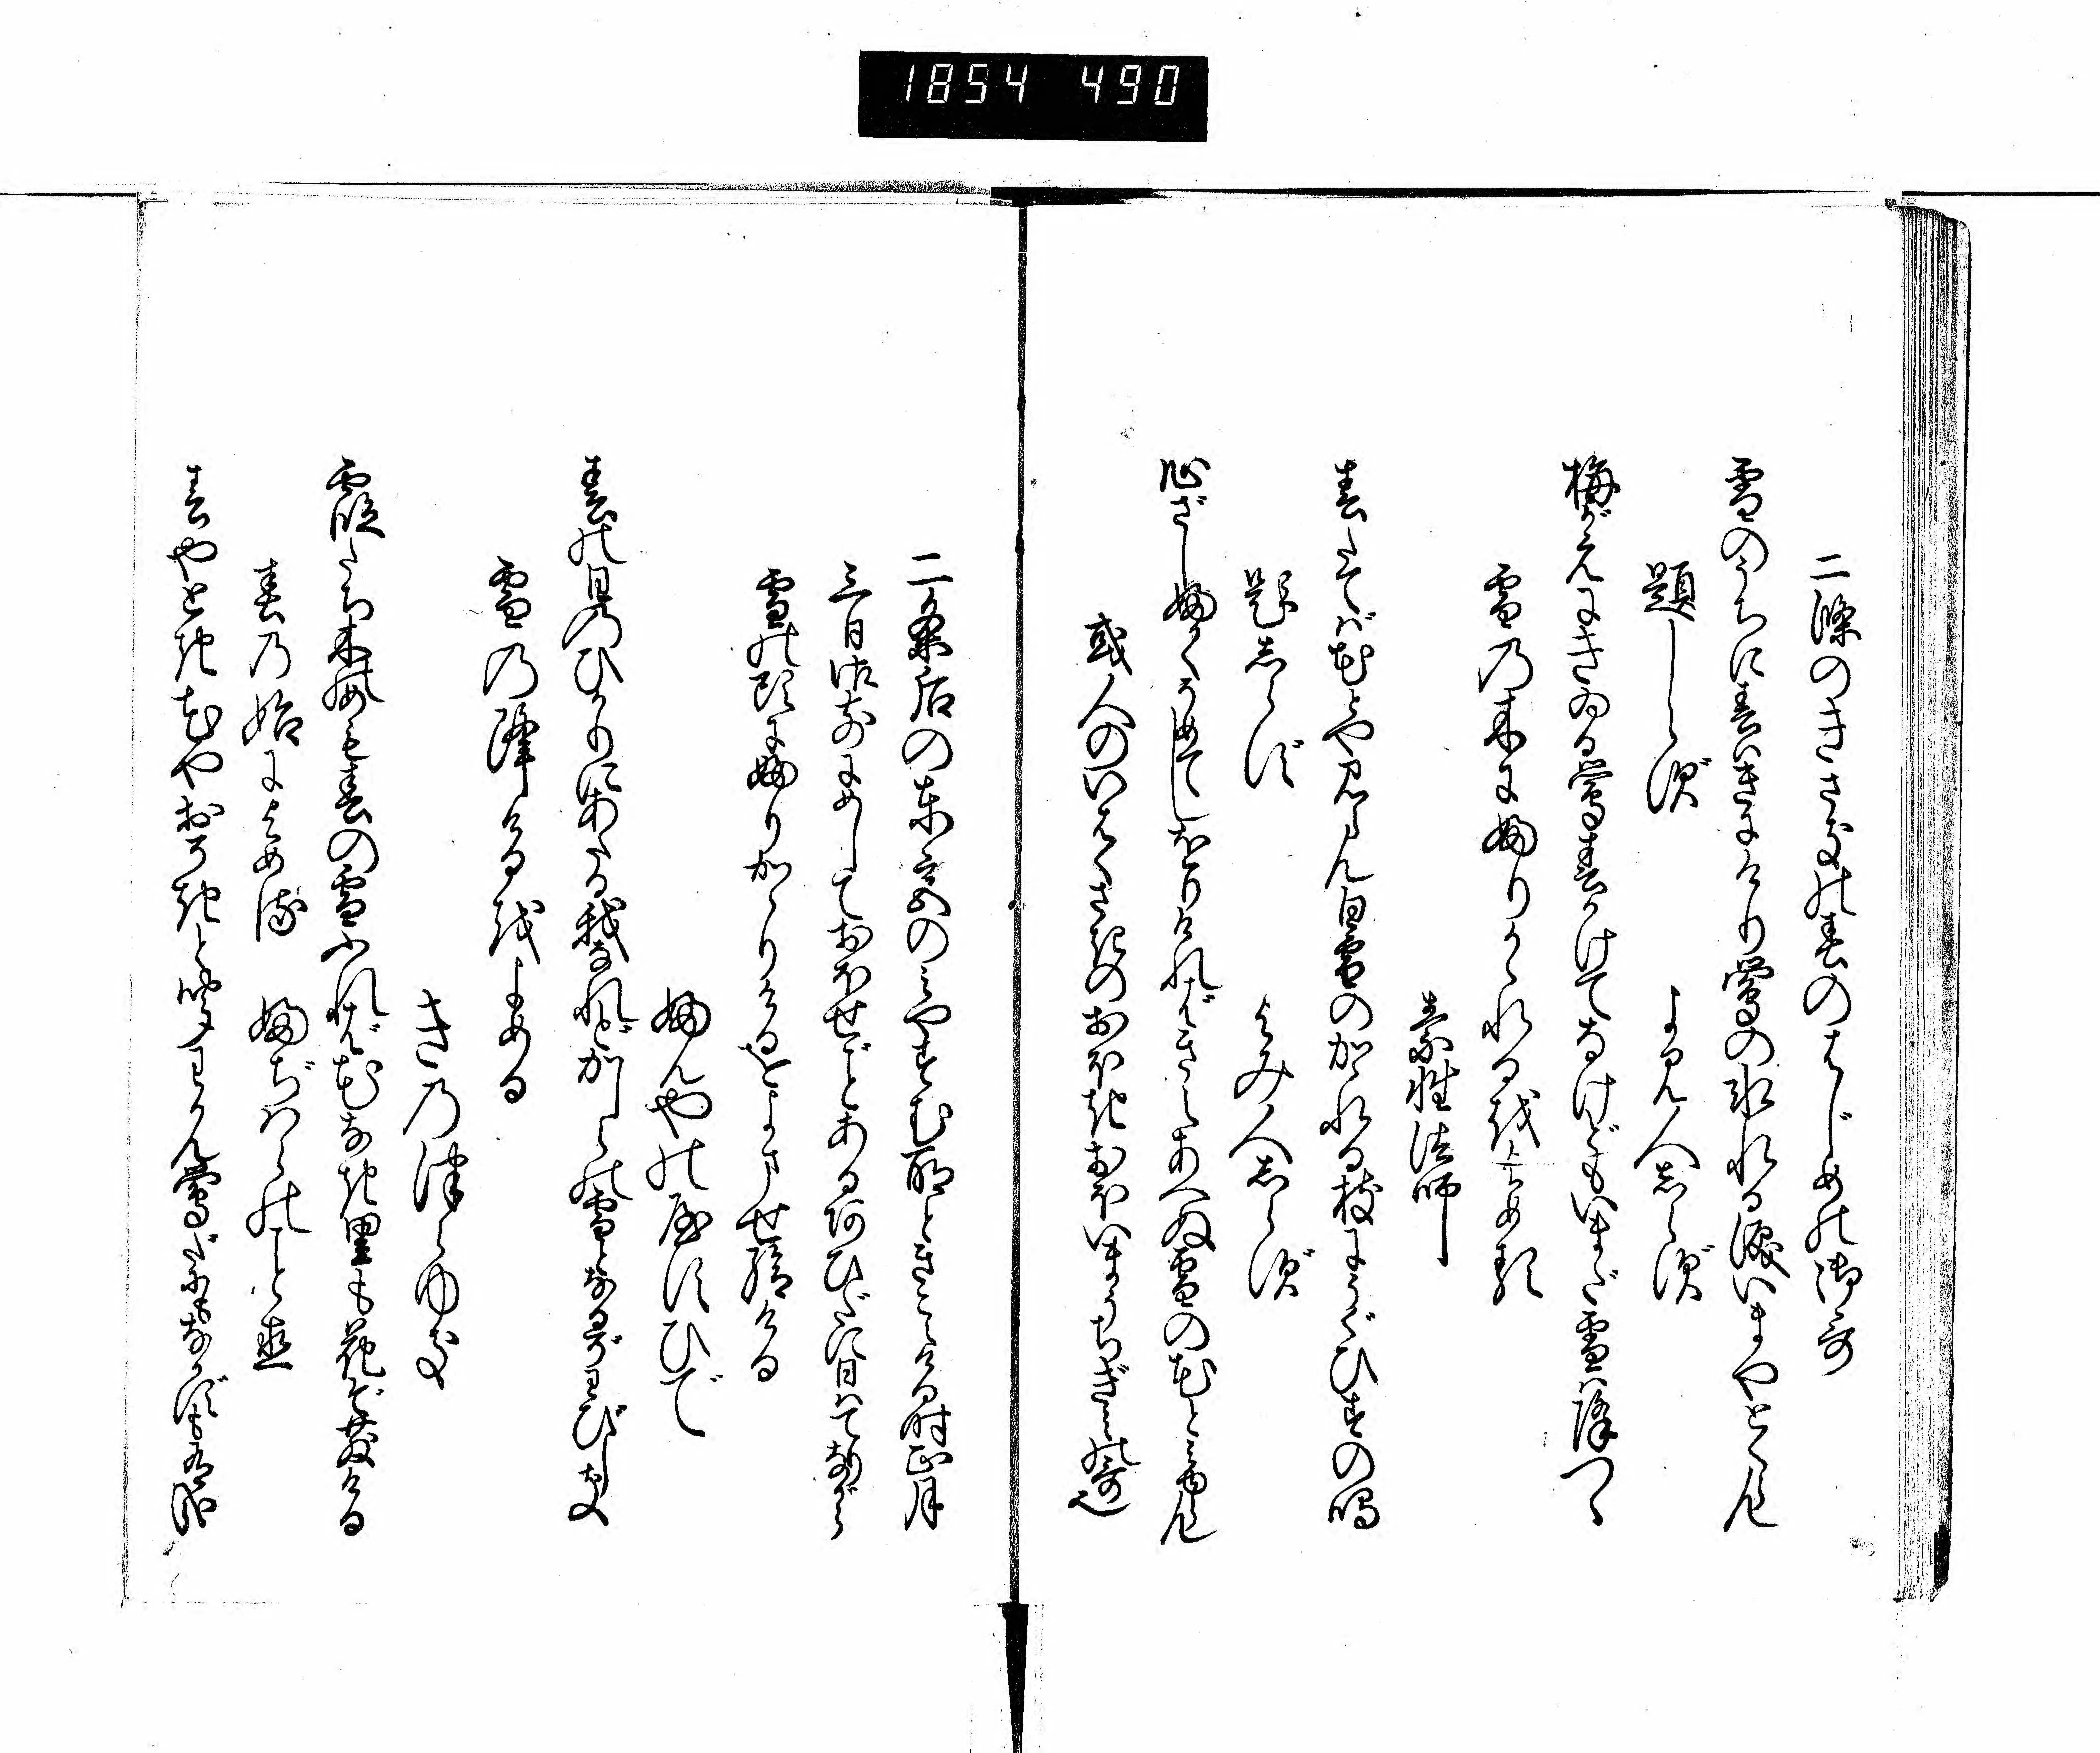 1854 490
二條のきさきの春のはじめの御哥
雪のうちに春はきにけり鶯の氷れる涙いまやとくらん
題しらず　よみ人しらず
梅がえにきゐる鶯春かけてなけどもいまだ雪は降つゝ
雪の木にふりかゝれるをよめる
素性法師
春たてば花とや見らん白雪のかゝれる枝にうぐひすの鳴
題しらず　よみ人しらず
心ざしふかくそめてしをりければきえあへぬ雪の花と見ゆらん
或人のいはくさきのおほきおほいまうちぎみの哥也
二条后の東宮のみやすむ所ときこえける時正月
三日御前にめしておほせごとあるあひだに日はてりながら
雪の頭にふりかゝりけるをよませ給ける
ふんやのやすひで
春の日のひかりにあたる我なれどかしらの雪となるぞわびしき
雪の降けるをよめる
きのつらゆき
霞たち木のめも春の雪ふれば花なき里も花ぞ散ける
春の始によめる　ふぢはらのこと直
春やとき花やおそきと聞わかん鶯だにもなかずも有哉